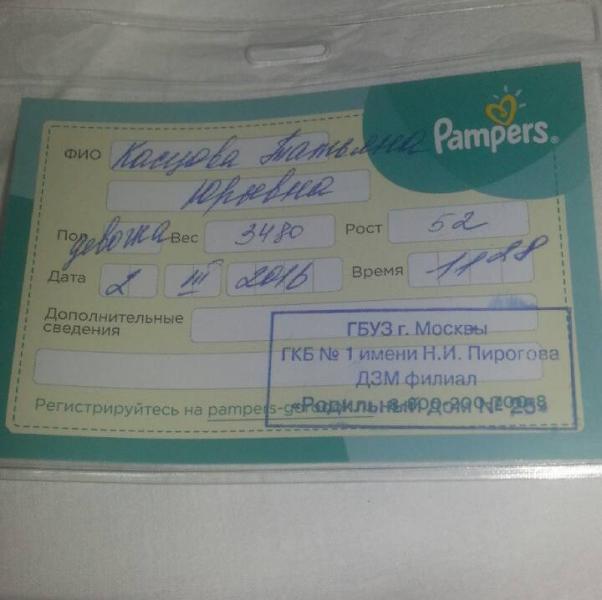 Pampers®
ФИО Касцова Татьяна
Юрьевна
Пол девочка Вес 3480 Рост 52
Дата 2 III 2016 Время 11 28
Дополнительные
сведения
ГБУЗ г. Москвы
ГКБ № 1 имени Н.И. Пирогова
ДЗМ филиал
«Родильный дом № 25»
Регистрируйтесь на pampers-